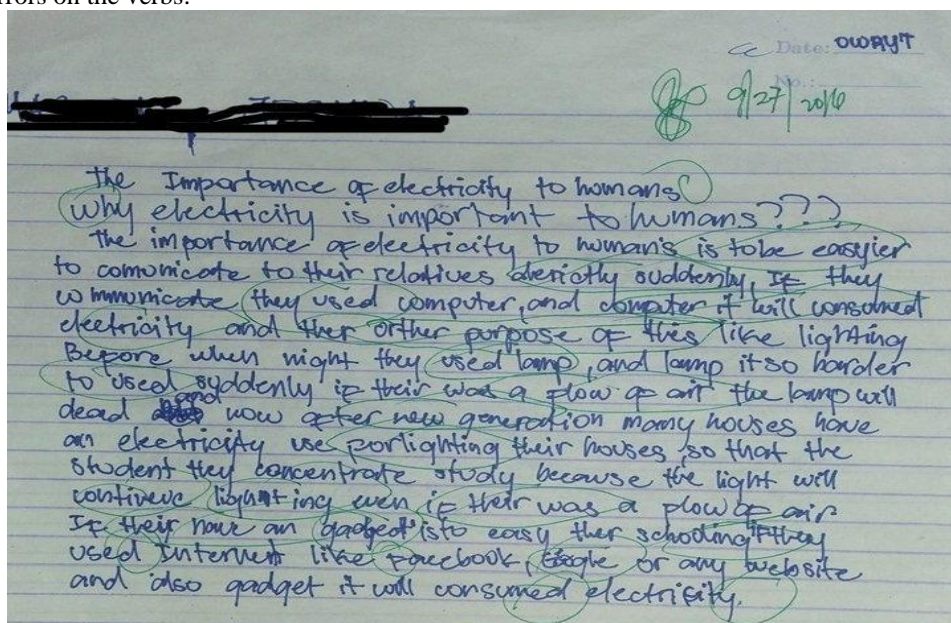 errors on the verbs.
Date: OWAYT
No.:
9/27/2016
The Importance of electricity to humans
Why electricity is important to humans???
The importance of electricity to human's is to be easyier
to comonicate to their relatives derictly suddenly, If they
communicate they used computer, and computer it will consumed
electricity and ther orther purpose of this like lighting
Before when night they used lamp, and lamp it so harder
to used suddenly if their was a flow of air the lamp will
dead and now after new generation many houses have
an electricity use forlighting their houses so that the
student they concentrate study because the light will
contineue lighting even if their was a flow of air
If their have an gadget is to easy ther schooling if they
used Internent like Facebook, Google or any website
and also gadget it will consumed electrifity.